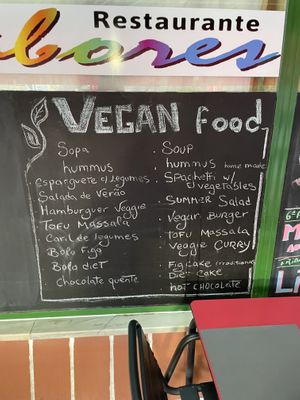 Restaurante
abores
VEGAN Food
Sopa
hummus
Esparguete c/legumes
Salada de Verão
Hamburguer Veggie
Tofu Massala
Caril de legumes
Bolo Figo
Bolo diet
Chocolate quente
. SOUP
. hummus home made
. SPAChetti w/
vegetables
. SUMMER Salad
. Vegan Burger
. TOFU MASSALA
. Veggie CURRY
. Fig Cake (traditional)
. Diet Cake
. hOT CHOCOLATE